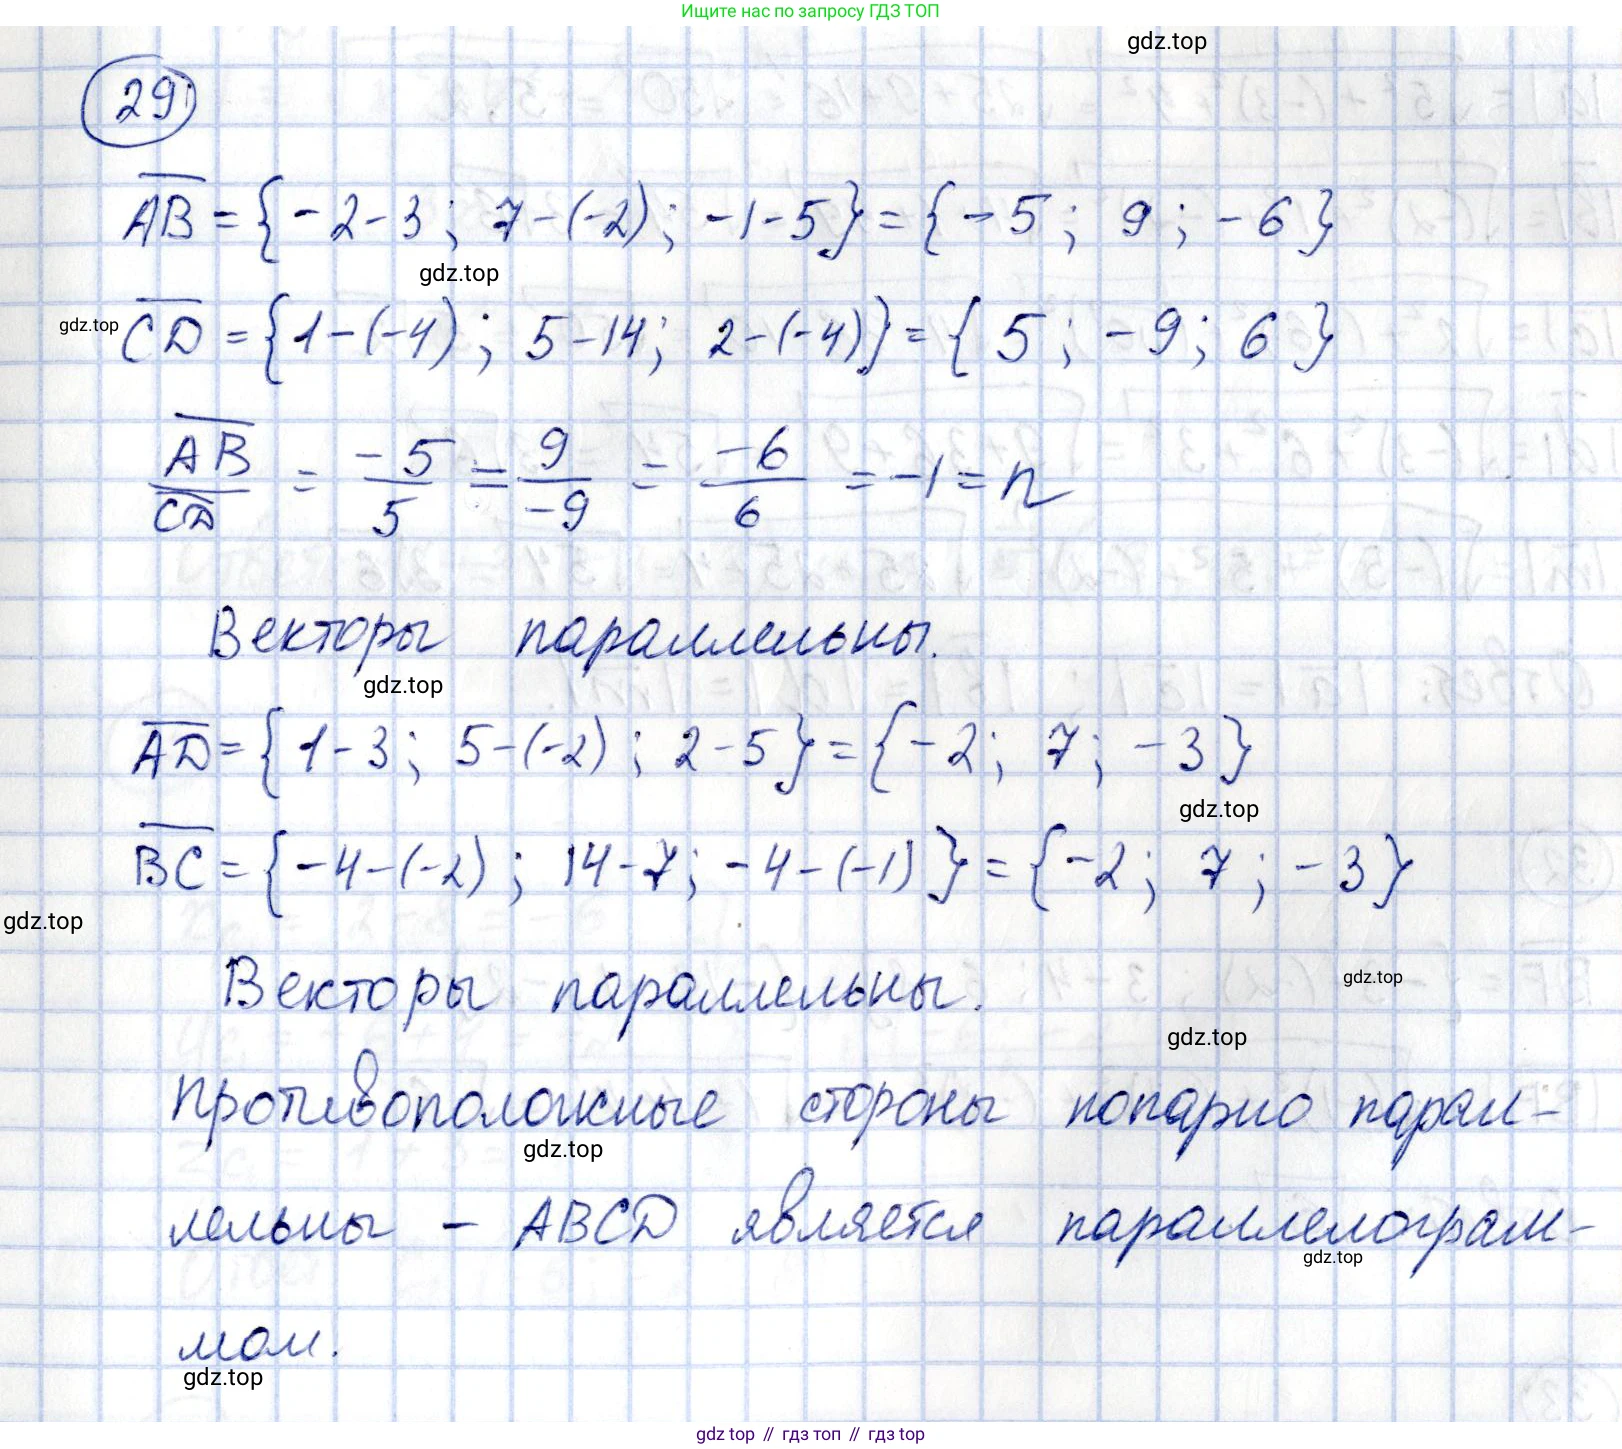 Ищите нас по запросу ГДЗ ТОП
gdz.top
29
AB = {-2-3; 7-(-2); -1-5} = {-5; 9; -6}
gdz.top
gdz.top
CD = {1-(-4); 5-14; 2-(-4)} = {5; -9; 6}
AB/CD = -5/5 = 9/-9 = -6/6 = -1 = n
Векторы параллельны.
gdz.top
AD = {1-3; 5-(-2); 2-5} = {-2; 7; -3}
gdz.top
BC = {-4-(-2); 14-7; -4-(-1)} = {-2; 7; -3}
gdz.top
Векторы параллельны.
gdz.top
gdz.top
Противоположные стороны попарно парал-
gdz.top
лельны - ABCD является параллелограм-
gdz.top
мом.
gdz.top
gdz.top // гдз топ // гдз top